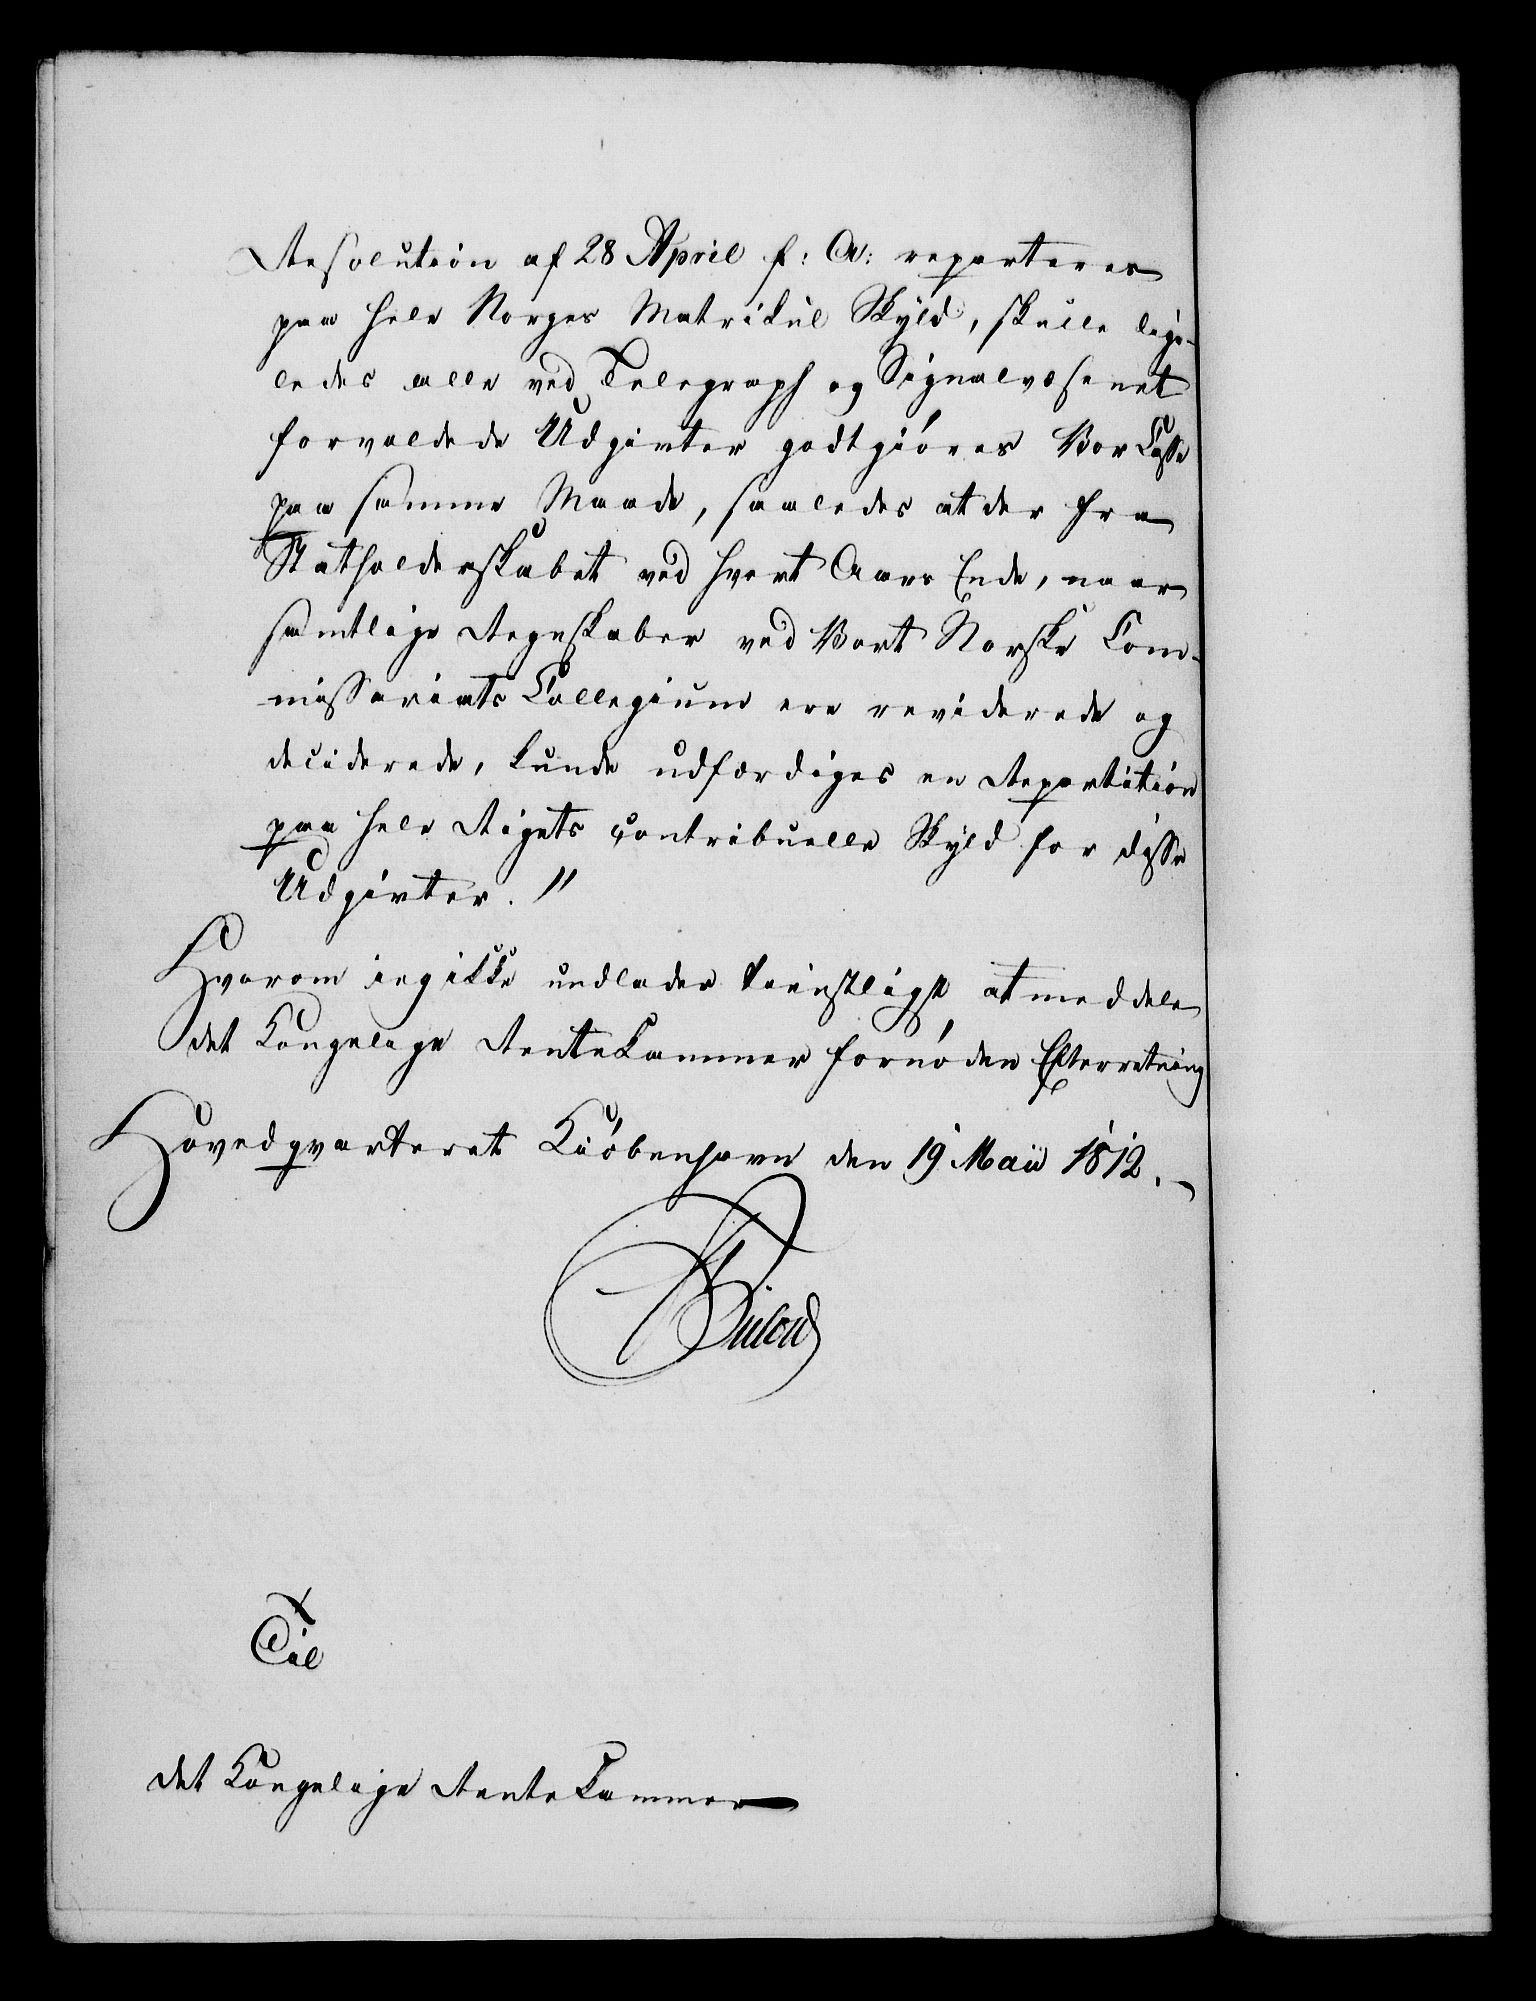 Resolution af 28 April f: A: reparteres
paa hele Norges Matricul Skyld, skulle lige-
ledes alle ved Telegraph og Signalvæsenet
forvoldede Udgivter godtgiøres Vor Casse
paa samme Maade, saaledes at der fra
Statholderskabet ved hvert Aars Ende, naar
samtlige Regnskaber ved Vort Norske Com-
missariats Collegium ere reviderede og
deciderede, kunde udfærdiges en Repartition
paa hele Rigets contribuelle Skyld for disse
Udgivter."
Hvorom ieg ikke undlader tienstligst at meddele
det Kongelige RenteKammer fornøden Efterretning
Hovedqvarteret Kiøbenhavn den 19 Maii 1812.
Bülow
Til
det Kongelige RenteKammer